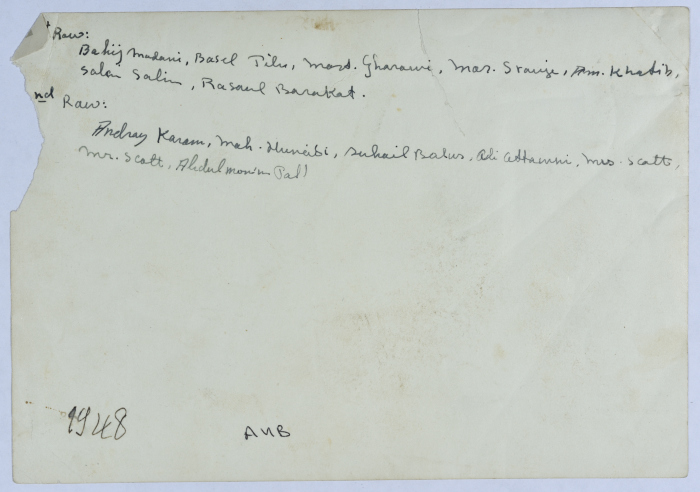 t Raw:
Bahij Madani, Basel Pilu, Moyd. Gharawi, Mar. Stavije, Am. Khatib,
Salan Salim, Rasaul Barakat.
nd Raw:
Andray Karam, Mah. Huneibi, Suhail Balus, Adi Attamini, Mrs. Scott,
Mr. Scott, Abdulmon'im
1948
AUB